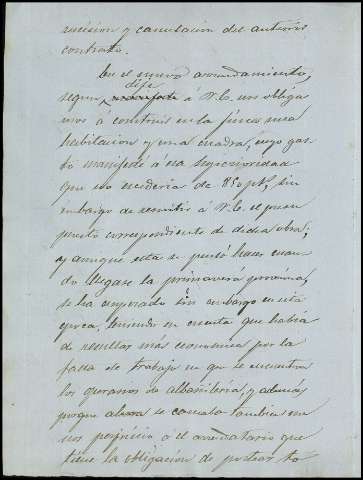 rescision y cancelacion del anterior
contrato.
En el nuevo arrendamiento,
dije
segun manifesté á V.E. nos obliga
mos á construir en la finca una
habitacion y una cuadra, cuyo gas
to manifesté á su superioridad
que no escederia de 850 pts, sin
embargo de remitir á V.E. el presu
puesto correspondiente de dicha obra;
y aunque esta se pactó hacer cuan
do llegase la primavera proxima,
se ha empezado sin embargo en esta
epoca, teniendo en cuenta que habia
de resultar mas economica por la
falta de trabajo en que se encuentran
los operarios de albañileria, y además
porque ahora se causaba tambien me
nos perjuicio á el arrendatario que
tiene la obligacion de portear to